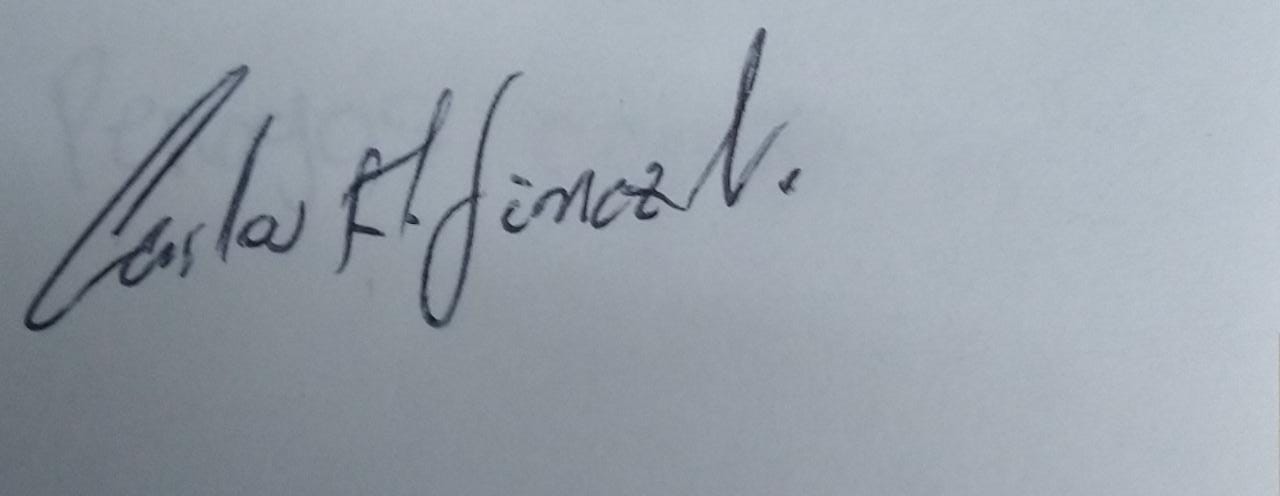 Carlos H. Jimenez V.